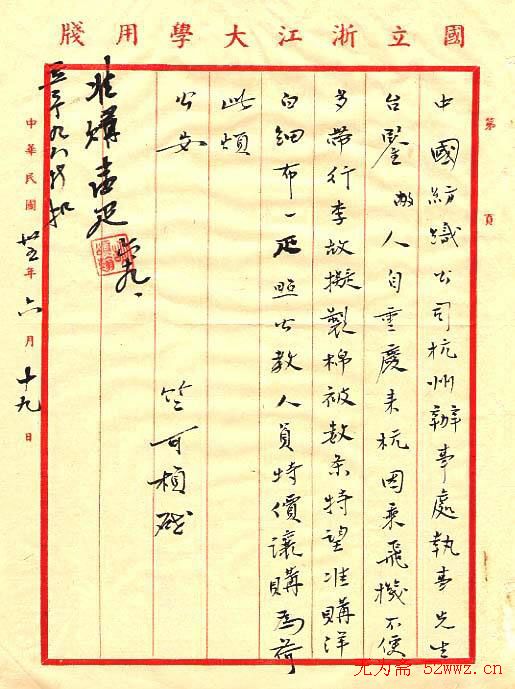 國立浙江大學用牋
第 頁
中國紡織公司杭州辦事處執事先生
台鑒敝人自重慶来杭因乘飛機不便
多帶行李故擬製棉被数条特望准購洋
白細布一疋照公教人員特價讓購為荷
此頌
公安
竺可楨啓
准購壹疋
六·十九
中華民國卅五年六月十九日
无为斋 52wwz.cn